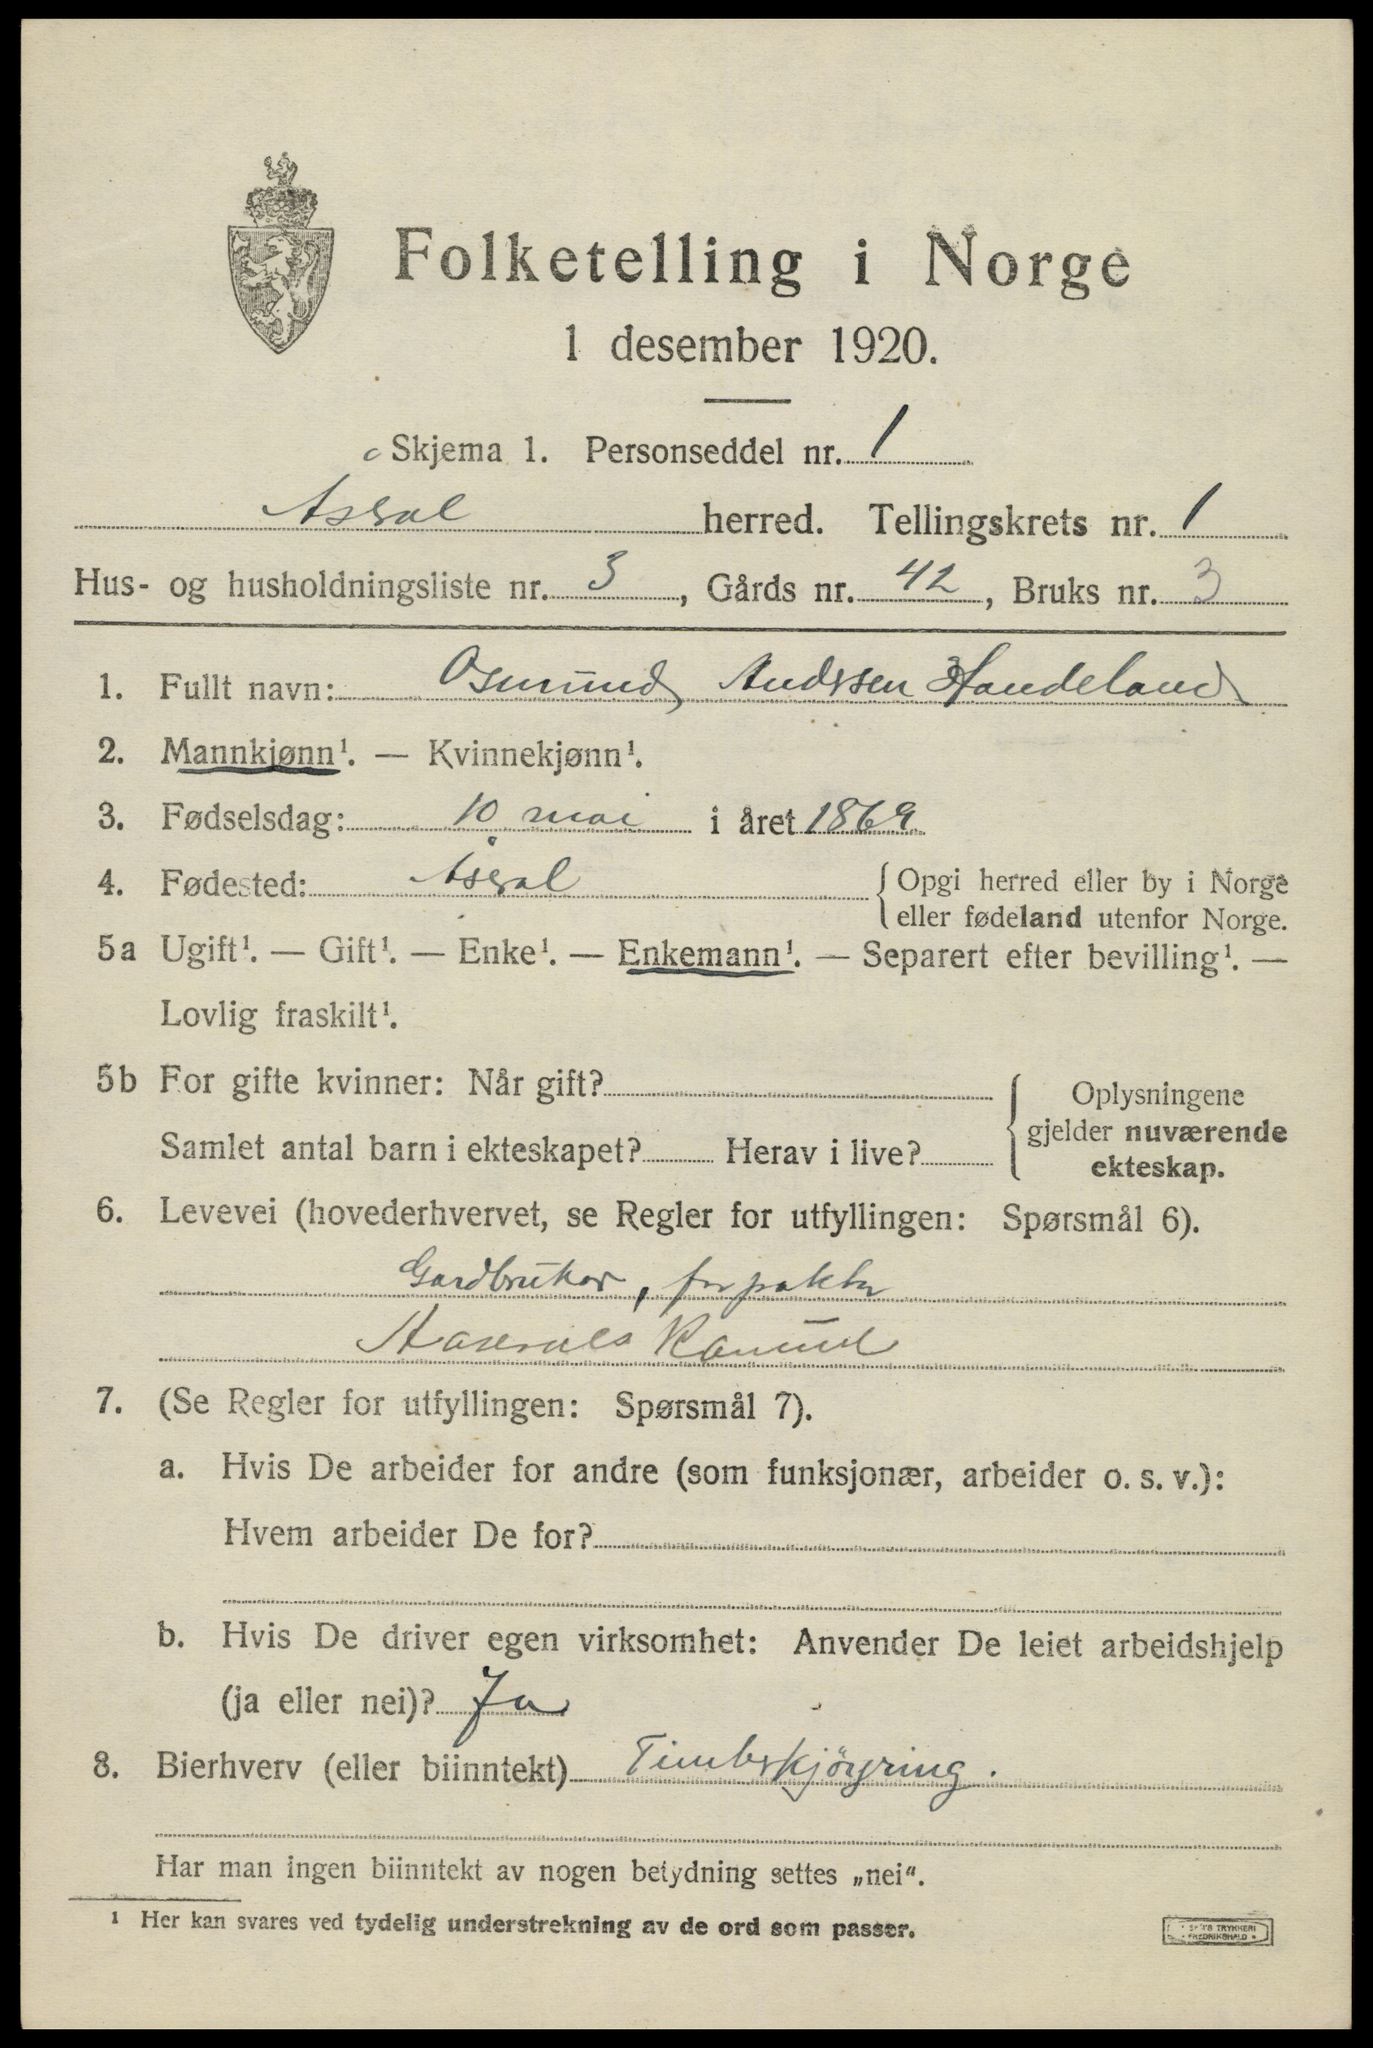 Folketelling i Norge
1 desember 1920.
Skjema 1. Personseddel nr. 1
Åseral herred. Tellingskrets nr. 1
Hus- og husholdningsliste nr. 3, Gårds nr. 42, Bruks nr. 3
1. Fullt navn: Osmund Andssen Handeland
2. Mannkjønn¹. — Kvinnekjønn¹.
3. Fødselsdag: 10 mai i året 1869
4. Fødested: Åseral { Opgi herred eller by i Norge
eller fødeland utenfor Norge.
5a Ugift¹. — Gift¹. — Enke¹. — Enkemann¹. — Separert efter bevilling¹. —
Lovlig fraskilt¹.
5b For gifte kvinner: Når gift? { Oplysningene
gjelder nuværende
Samlet antal barn i ekteskapet? Herav i live? ekteskap.
6. Levevei (hovederhvervet, se Regler for utfyllingen: Spørsmål 6).
Gardbruker, forpakter
Aaserals
7. (Se Regler for utfyllingen: Spørsmål 7).
a. Hvis De arbeider for andre (som funksjonær, arbeider o. s. v.):
Hvem arbeider De for?
b. Hvis De driver egen virksomhet: Anvender De leiet arbeidshjelp
(ja eller nei)? Ja
8. Bierhverv (eller biinntekt) Timberkjöyring.
Har man ingen biinntekt av nogen betydning settes „nei“.
¹ Her kan svares ved tydelig understrekning av de ord som passer.
TRYKKERI
FREDRIKSHALD